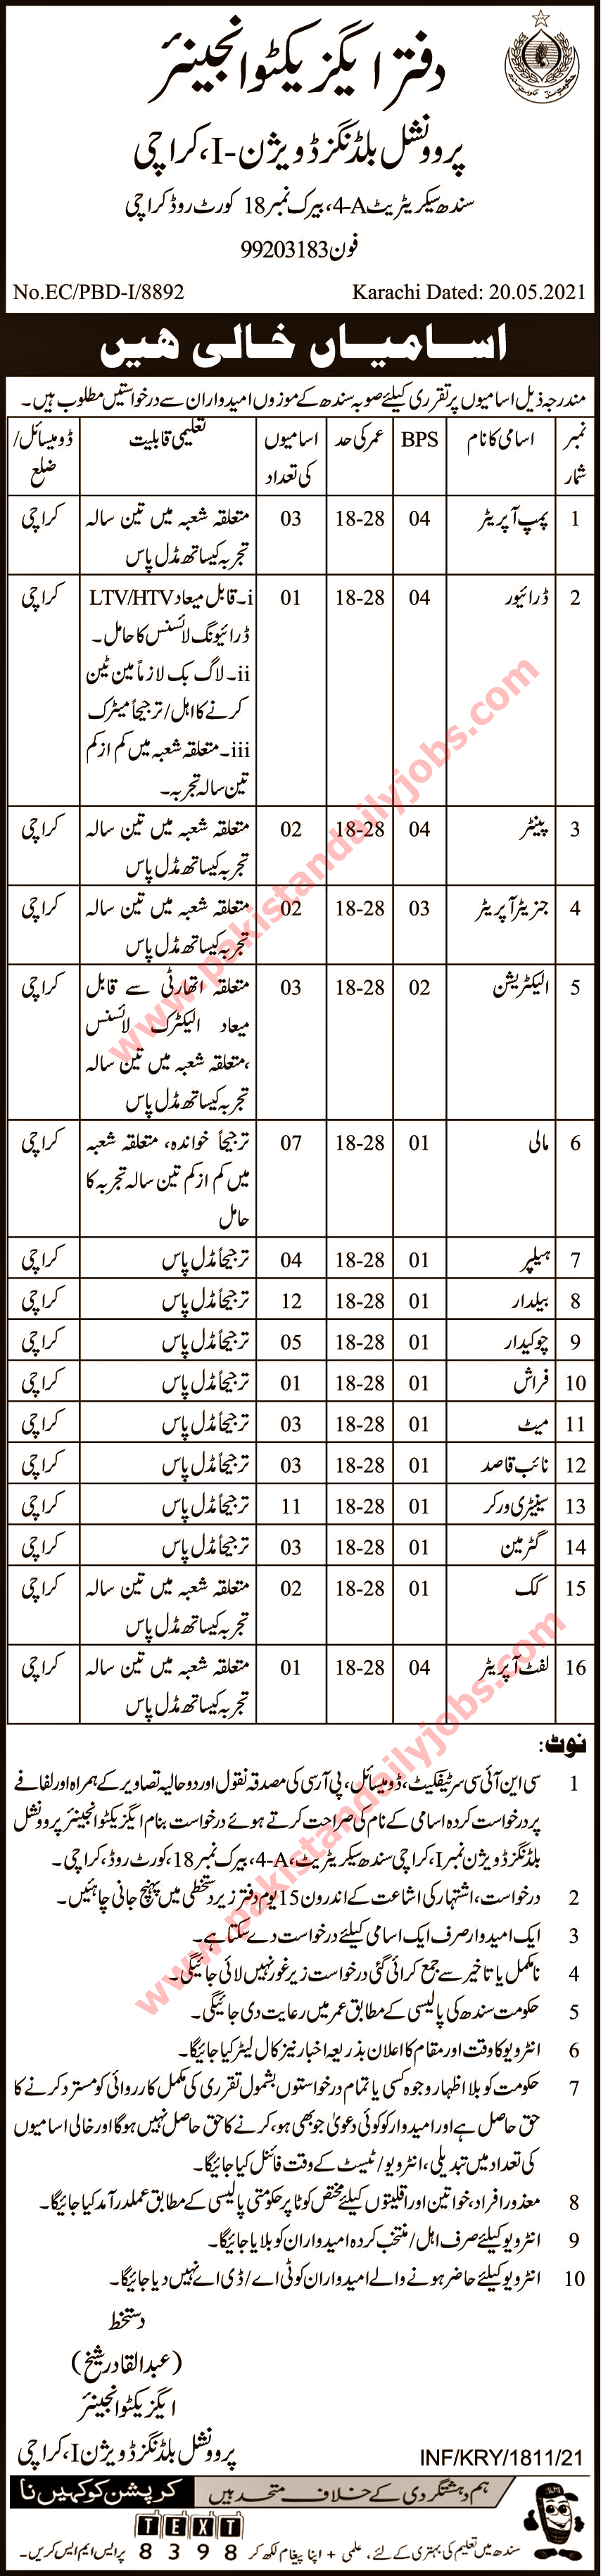 دفتر ایگزیکٹو انجینئر
پروونشل بلڈنگز ڈویژن-I، کراچی
سندھ سیکریٹریٹ 4-A، بیرک نمبر 18 کورٹ روڈ کراچی
فون 99203183
No.EC/PBD-I/8892 Karachi Dated: 20.05.2021
اسامیاں خالی ھیں
مندرجہ ذیل اسامیوں پر تقرری کیلئے صوبہ سندھ کے موزوں امیدواران سے درخواستیں مطلوب ہیں۔
نمبر شمار اسامی کا نام BPS عمر کی حد اسامیوں کی تعداد تعلیمی قابلیت ڈومیسائل/ضلع
1 پمپ آپریٹر 04 18-28 03 متعلقہ شعبہ میں تین سالہ کراچی
تجربہ کیساتھ مڈل پاس
2 ڈرائیور 04 18-28 01 i۔قابل میعاد LTV/HTV کراچی
ڈرائیونگ لائسنس کا حامل۔
ii۔لاگ بک لازماً مین ٹین
کرنے کا اہل/ترجیحاً میٹرک
iii۔متعلقہ شعبہ میں کم از کم
تین سالہ تجربہ۔
3 پینٹر 04 18-28 02 متعلقہ شعبہ میں تین سالہ کراچی
تجربہ کیساتھ مڈل پاس
4 جنریٹر آپریٹر 03 18-28 02 متعلقہ شعبہ میں تین سالہ کراچی
تجربہ کیساتھ مڈل پاس
5 الیکٹریشن 02 18-28 03 متعلقہ اتھارٹی سے قابل کراچی
میعاد الیکٹرک لائسنس
،متعلقہ شعبہ میں تین سالہ
تجربہ کیساتھ مڈل پاس
6 مالی 01 18-28 07 ترجیحاً خواندہ، متعلقہ شعبہ کراچی
میں کم از کم تین سالہ تجربہ کا
حامل
7 ہیلپر 01 18-28 04 ترجیحاً مڈل پاس کراچی
8 بیلدار 01 18-28 12 ترجیحاً مڈل پاس کراچی
9 چوکیدار 01 18-28 05 ترجیحاً مڈل پاس کراچی
10 فراش 01 18-28 01 ترجیحاً مڈل پاس کراچی
11 میٹ 01 18-28 03 ترجیحاً مڈل پاس کراچی
12 نائب قاصد 01 18-28 03 ترجیحاً مڈل پاس کراچی
13 سینیٹری ورکر 01 18-28 11 ترجیحاً مڈل پاس کراچی
14 گٹر مین 01 18-28 03 ترجیحاً مڈل پاس کراچی
15 کک 01 18-28 02 متعلقہ شعبہ میں تین سالہ کراچی
تجربہ کیساتھ مڈل پاس
16 لفٹ آپریٹر 04 18-28 01 متعلقہ شعبہ میں تین سالہ کراچی
تجربہ کیساتھ مڈل پاس
نوٹ:
1 سی این آئی سی سرٹیفکیٹ، ڈومیسائل، پی آر سی کی مصدقہ نقول اور دو حالیہ تصاویر کے ہمراہ اور لفافے
پر درخواست کردہ اسامی کے نام کی صراحت کرتے ہوئے درخواست بنام ایگزیکٹو انجینئر پروونشل
بلڈنگز ڈویژن نمبر I، کراچی سندھ سیکریٹریٹ، 4-A، بیرک نمبر 18، کورٹ روڈ، کراچی۔
2 درخواست، اشتہار کی اشاعت کے اندرون 15 یوم دفتر زیر دستخطی میں پہنچ جانی چاہئیں۔
3 ایک امیدوار صرف ایک اسامی کیلئے درخواست دے سکتا ہے۔
4 نامکمل یا تاخیر سے جمع کرائی گئی درخواست زیر غور نہیں لائی جائیگی۔
5 حکومت سندھ کی پالیسی کے مطابق عمر میں رعایت دی جائیگی۔
6 انٹرویو کا وقت اور مقام کا اعلان بذریعہ اخبار نیز کال لیٹر کیا جائیگا۔
7 حکومت کو بلا اظہار وجوہ کسی یا تمام درخواستوں بشمول تقرری کی مکمل کارروائی کو مسترد کرنے کا
حق حاصل ہے اور امیدوار کو کوئی دعویٰ جو بھی ہو، کرنے کا حق حاصل نہیں ہوگا اور خالی اسامیوں
کی تعداد میں تبدیلی، انٹرویو/ٹیسٹ کے وقت فائنل کیا جائیگا۔
8 معذور افراد، خواتین اور اقلیتوں کیلئے مختص کوٹا پر حکومتی پالیسی کے مطابق عملدرآمد کیا جائیگا۔
9 انٹرویو کیلئے صرف اہل/منتخب کردہ امیدواران کو بلایا جائیگا۔
10 انٹرویو کیلئے حاضر ہونے والے امیدواران کو ٹی اے/ڈی اے نہیں دیا جائیگا۔
دستخط
(عبدالقادر شیخ)
ایگزیکٹو انجینئر
پروونشل بلڈنگز ڈویژن I، کراچی
INF/KRY/1811/21
ہم دہشتگردی کے خلاف متحد ہیں کرپشن کو کہیں نا
TEXT
سندھ میں تعلیم کی بہتری کے لئے، علمی + اپنا پیغام لکھ کر 8398 پر ایس ایم ایس کریں۔
www.pakistandailyjobs.com
www.pakistandailyjobs.com